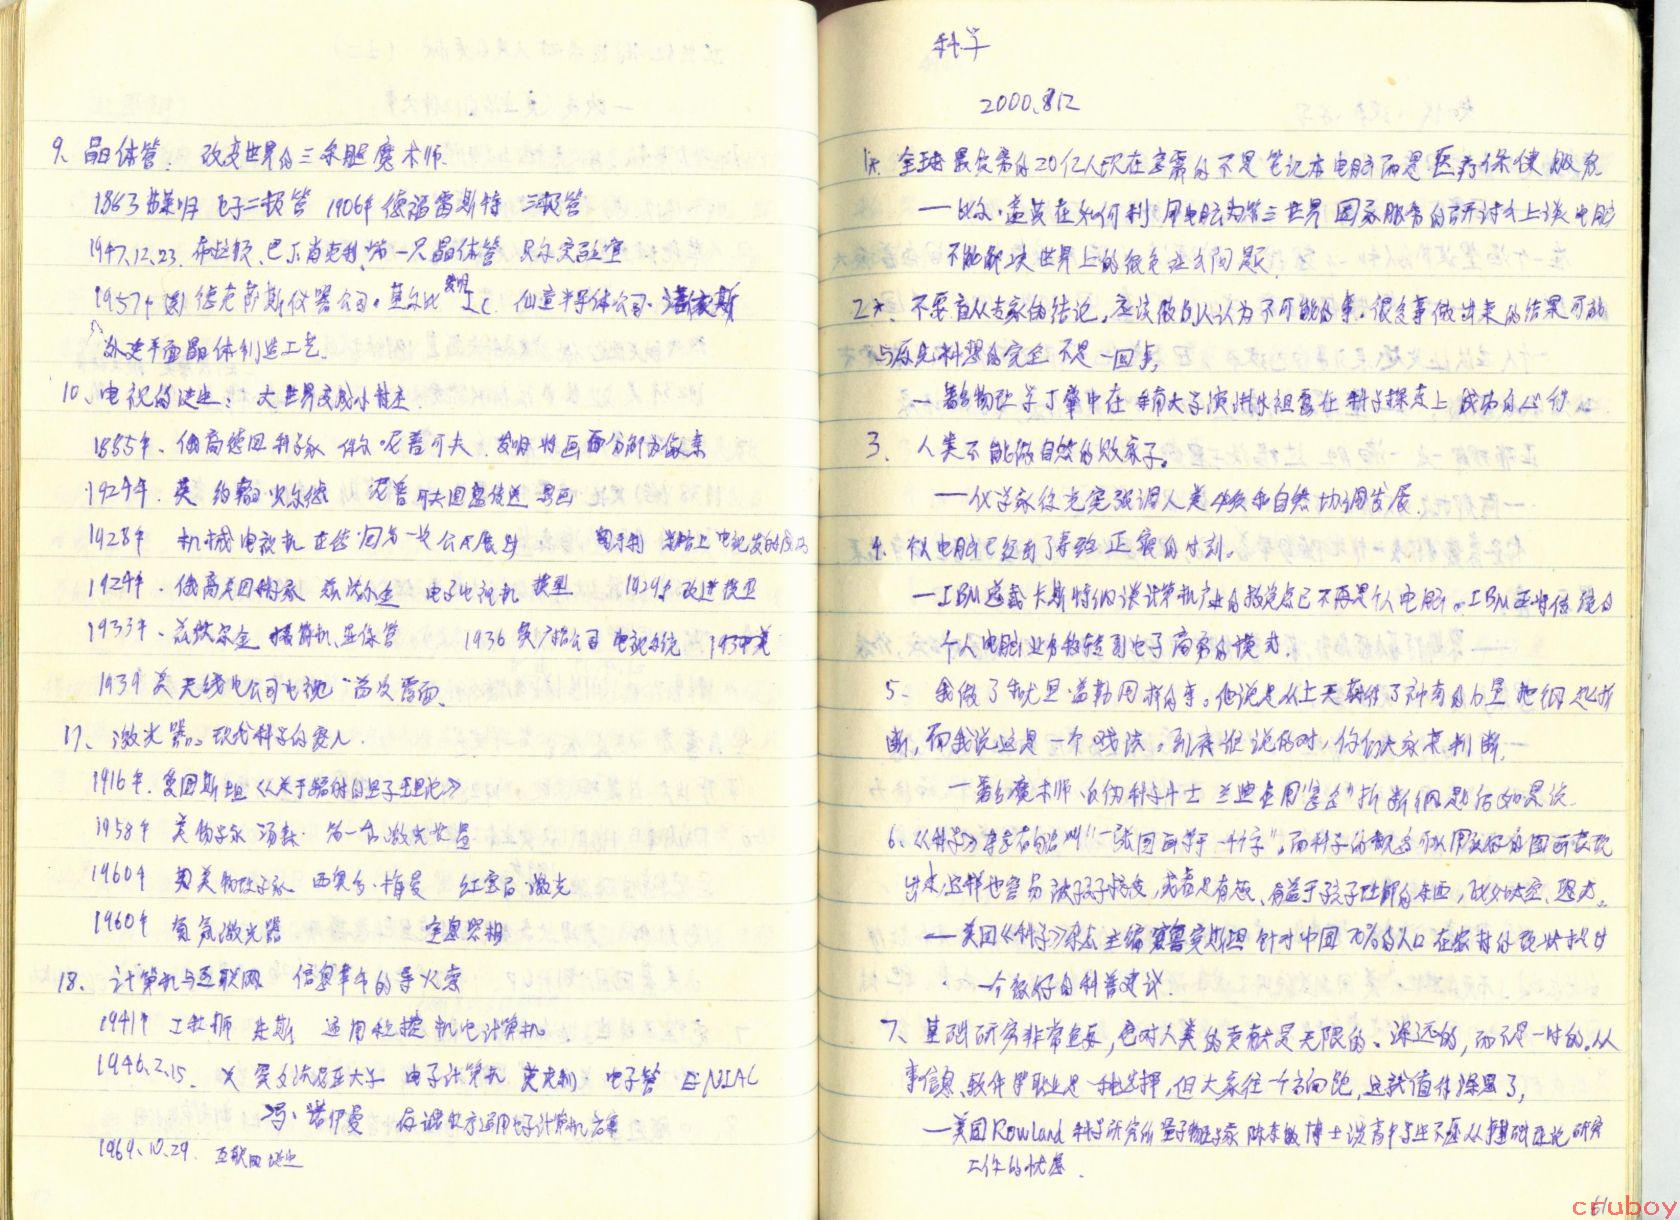 9、晶体管: 改变世界的三条腿魔术师.
1863 弗莱明 电子二极管 1906年 德福雷斯特 三极管
1947.12.23. 布拉顿、巴丁、肖克利 第一只晶体管 贝尔实验室
1957年 德克萨斯仪器公司 基尔比 发明 I.C. 仙童半导体公司·诺依斯
改进平面晶体制造工艺.
10、电视的诞生: 大世界变成小村庄.
1885年、俄裔德国科学家 保尔·尼普可夫、发明将画面分解为像素
1924年、英 约翰·贝尔德 尼普可夫圆盘传送 图画
1928年 机械电视机 在 第一次公开展出
1924年、俄裔美国科学家 兹沃尔金 电子电视机 模型 1929年改进模型
1933年、兹沃尔金 摄像机、显像管 1936 英广播公司 电视系统 1939美
1939 美 无线电公司电视"首次露面.
17、激光器: 现代科学的宠儿.
1916年. 爱因斯坦《关于辐射的量子理论》
1958年 美物学家 汤森· 第一台激光
1960年 美物理学家 西奥多·梅曼 红宝石激光
1960年 氦氖激光器 全息照相
18、计算机与互联网 信息革命的导火索
1941年 工程师 朱斯 通用程控机电计算机
1946.2.15. 美 宾夕法尼亚大学 电子计算机 莫克利 电子管 ENIAC
冯·诺伊曼 存诸 通用电子计算机方案
1969.10.29. 互联网诞生
科学
2000.8.12
1、全球最贫穷的20亿人现在急需的不是笔记本电脑而是医疗保健服务
—比尔·盖茨在如何利用电脑为第三世界国家服务的研讨会上谈电脑
不能解决世界上的很多社会问题.
2、不要盲从专家的结论。应该做别人认为不可能的事。很多事做出来的结果可能
与原先料想的完全不是一回事,
—著名物理学丁肇中在 大学演讲 在科学探索上成功的心得。
3、人类不能做自然的败家子。
—化学家徐光宪强调人类必须和自然协调发展
4、个人电脑已经到了寿终正寝的时刻.
—IBM总裁卡斯特纳谈计算机产业的热点已不再是个人电脑。IBM
个人电脑业务 转到电子商务的模式.
5、我做了和尤里·盖勒同样的事。他说是从上天获得了神奇的力量把钢匙折
断,而我说这是一个戏法。到底谁说的对,你们大家来判断.
—著名魔术师、反伪科学斗士兰迪在用"意念"折断钢匙后如是说.
6、《科学》杂志有句名叫"一张图画等于一千个字"。而科学的概念可以用很好的图画表现
出来,这样也容易被孩子接受,或者是有趣、有益于孩子理解的东西,比如太空、恐龙。
—美国《科学》杂志主编 鲁宾斯坦 针对中国70%的人口在农村的现状提出
一个很好的科普建议.
7、基础研究非常重要,它对人类的贡献是无限的、深远的,而不是一时的。从
事信息、软件等职业是一种选择,但大家往一个方向跑,这就值得深思了,
—美国Rowland科学研究所量子物理学家 博士谈青年学生不愿从事基础理论研究
工作的忧虑.
61
cruboy